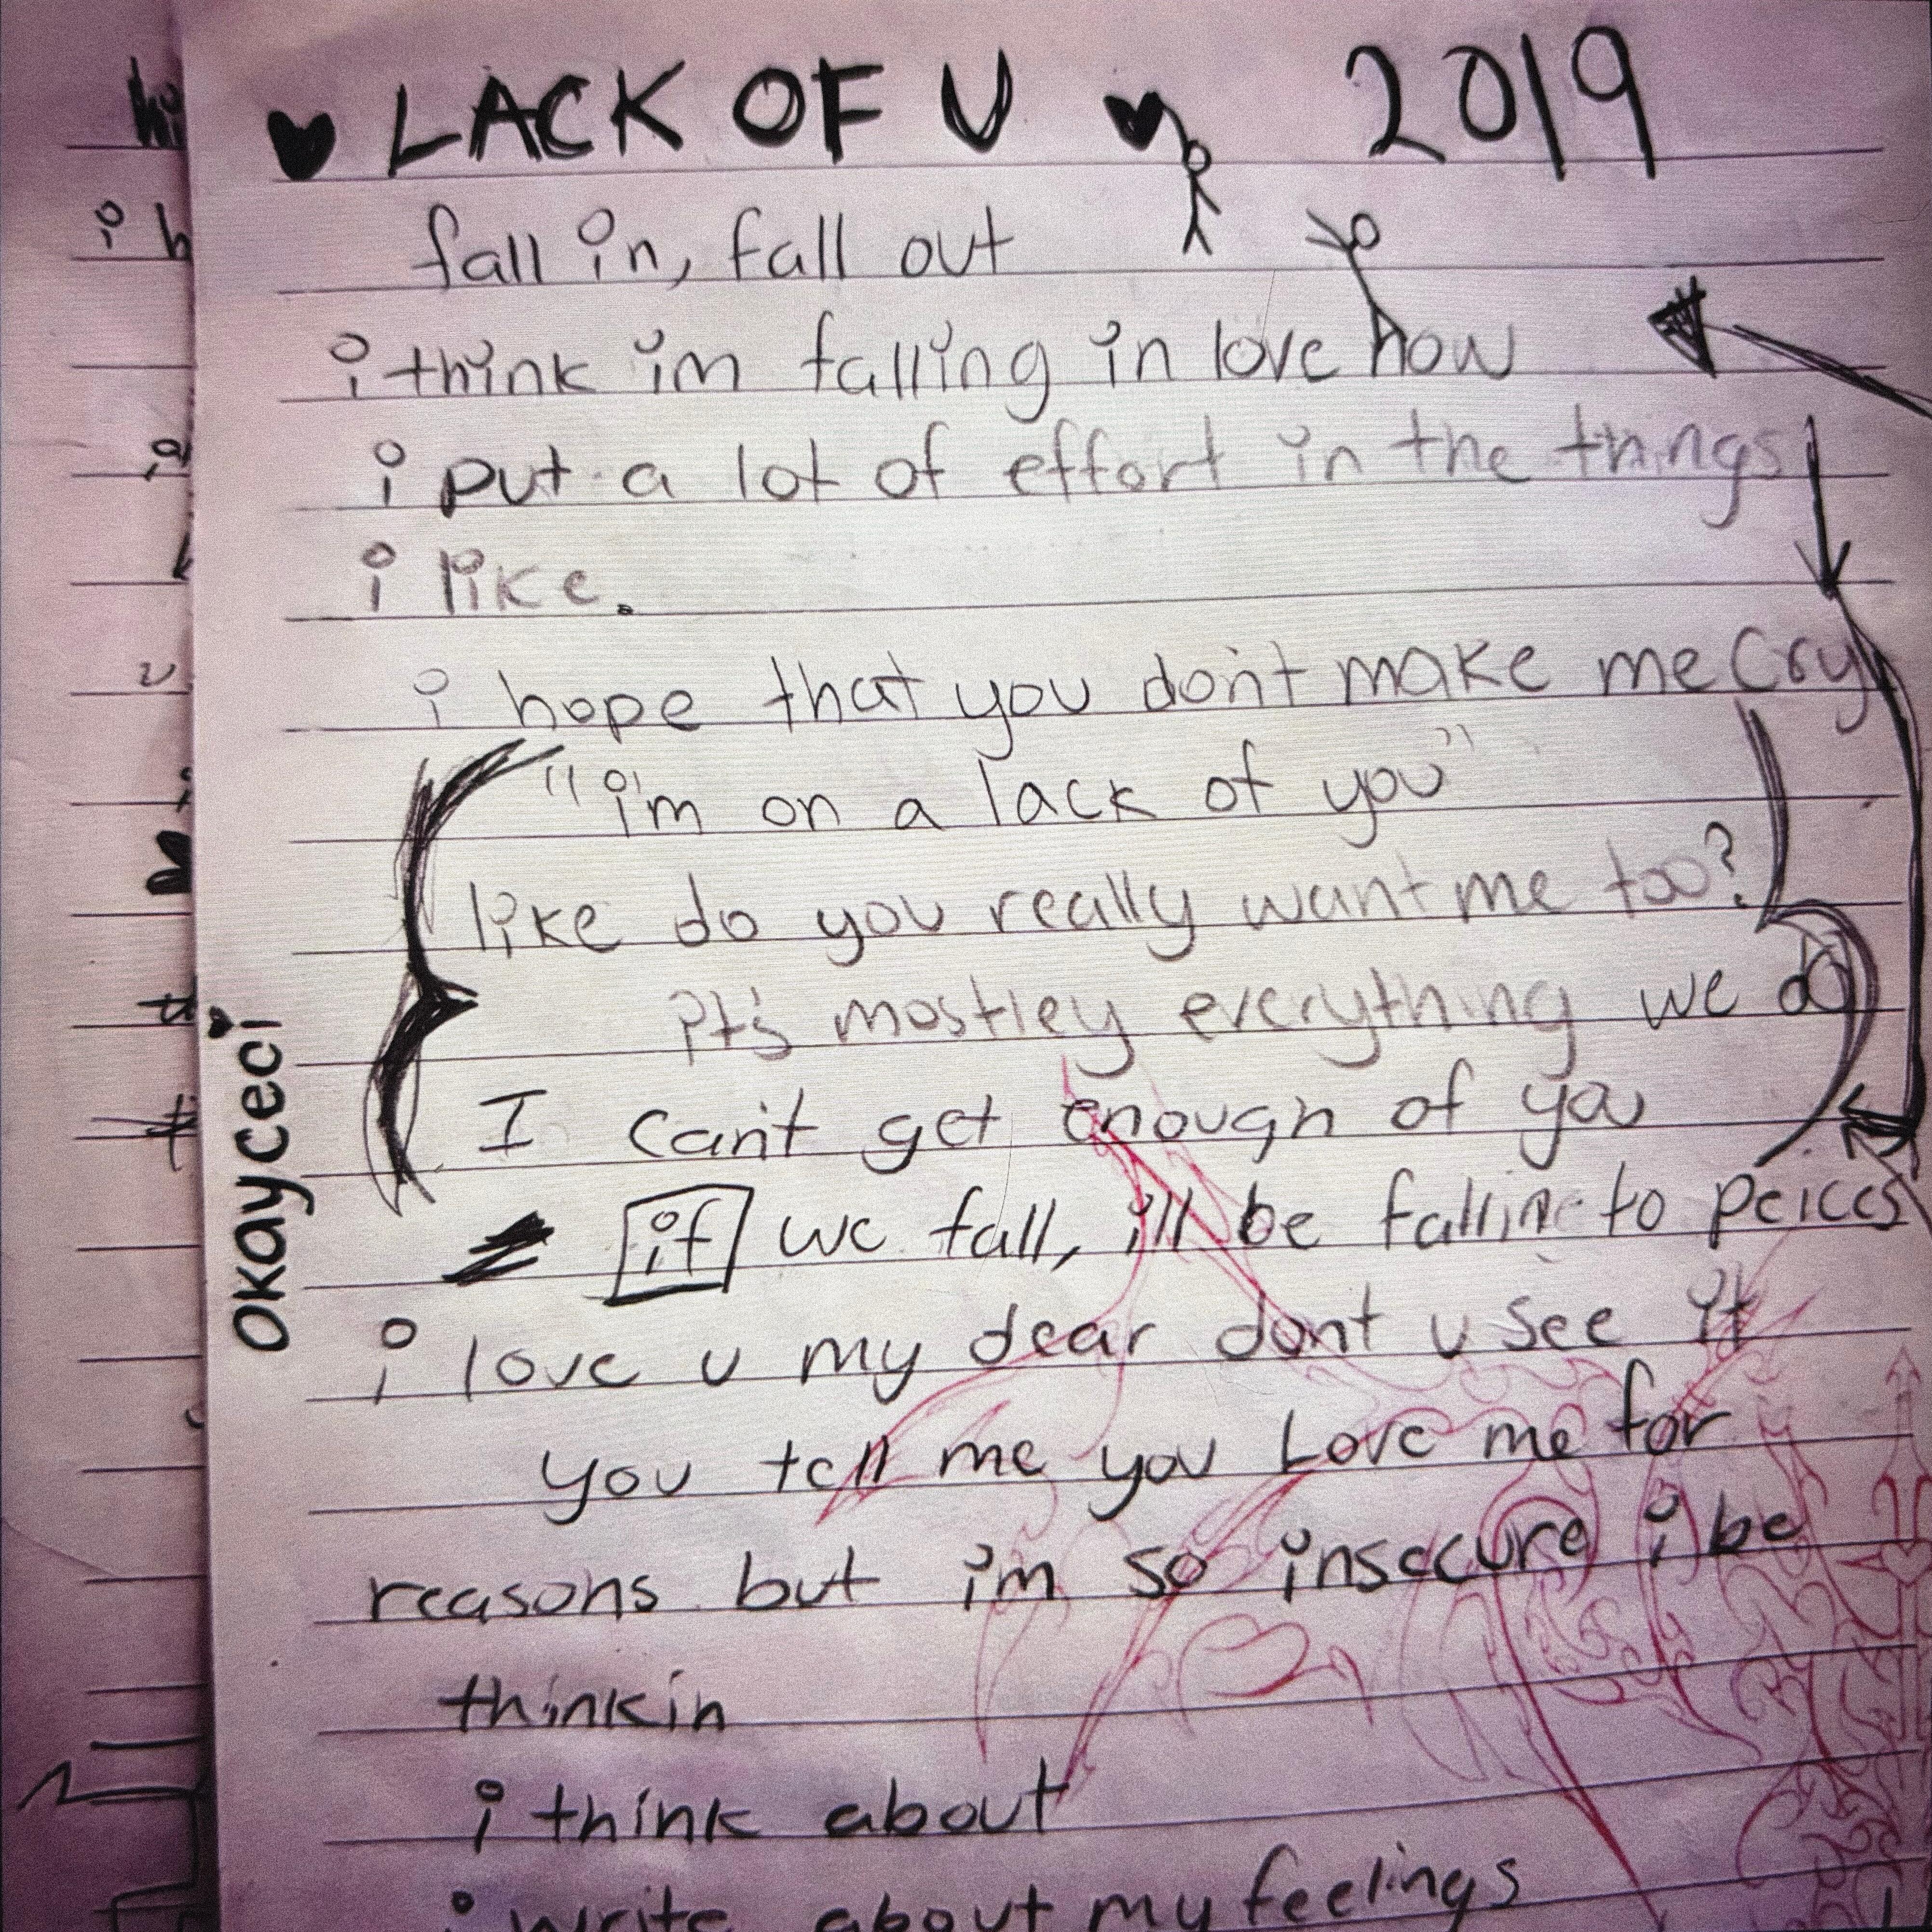 ♥ LACK OF U ♥ 2019
fall in, fall out
i think im falling in love how
i put a lot of effort in the things
i like.
i hope that you don't make me Cry
"i'm on a lack of you"
like do you really want me too?
it's mostley everything we do
I can't get enough of you
if we fall, i'll be fallin to peices
i love u my dear dont u see it
you tell me you Love me for
reasons but i'm so insecure i be
thinkin
i think about
i write about my feelings
okayceci